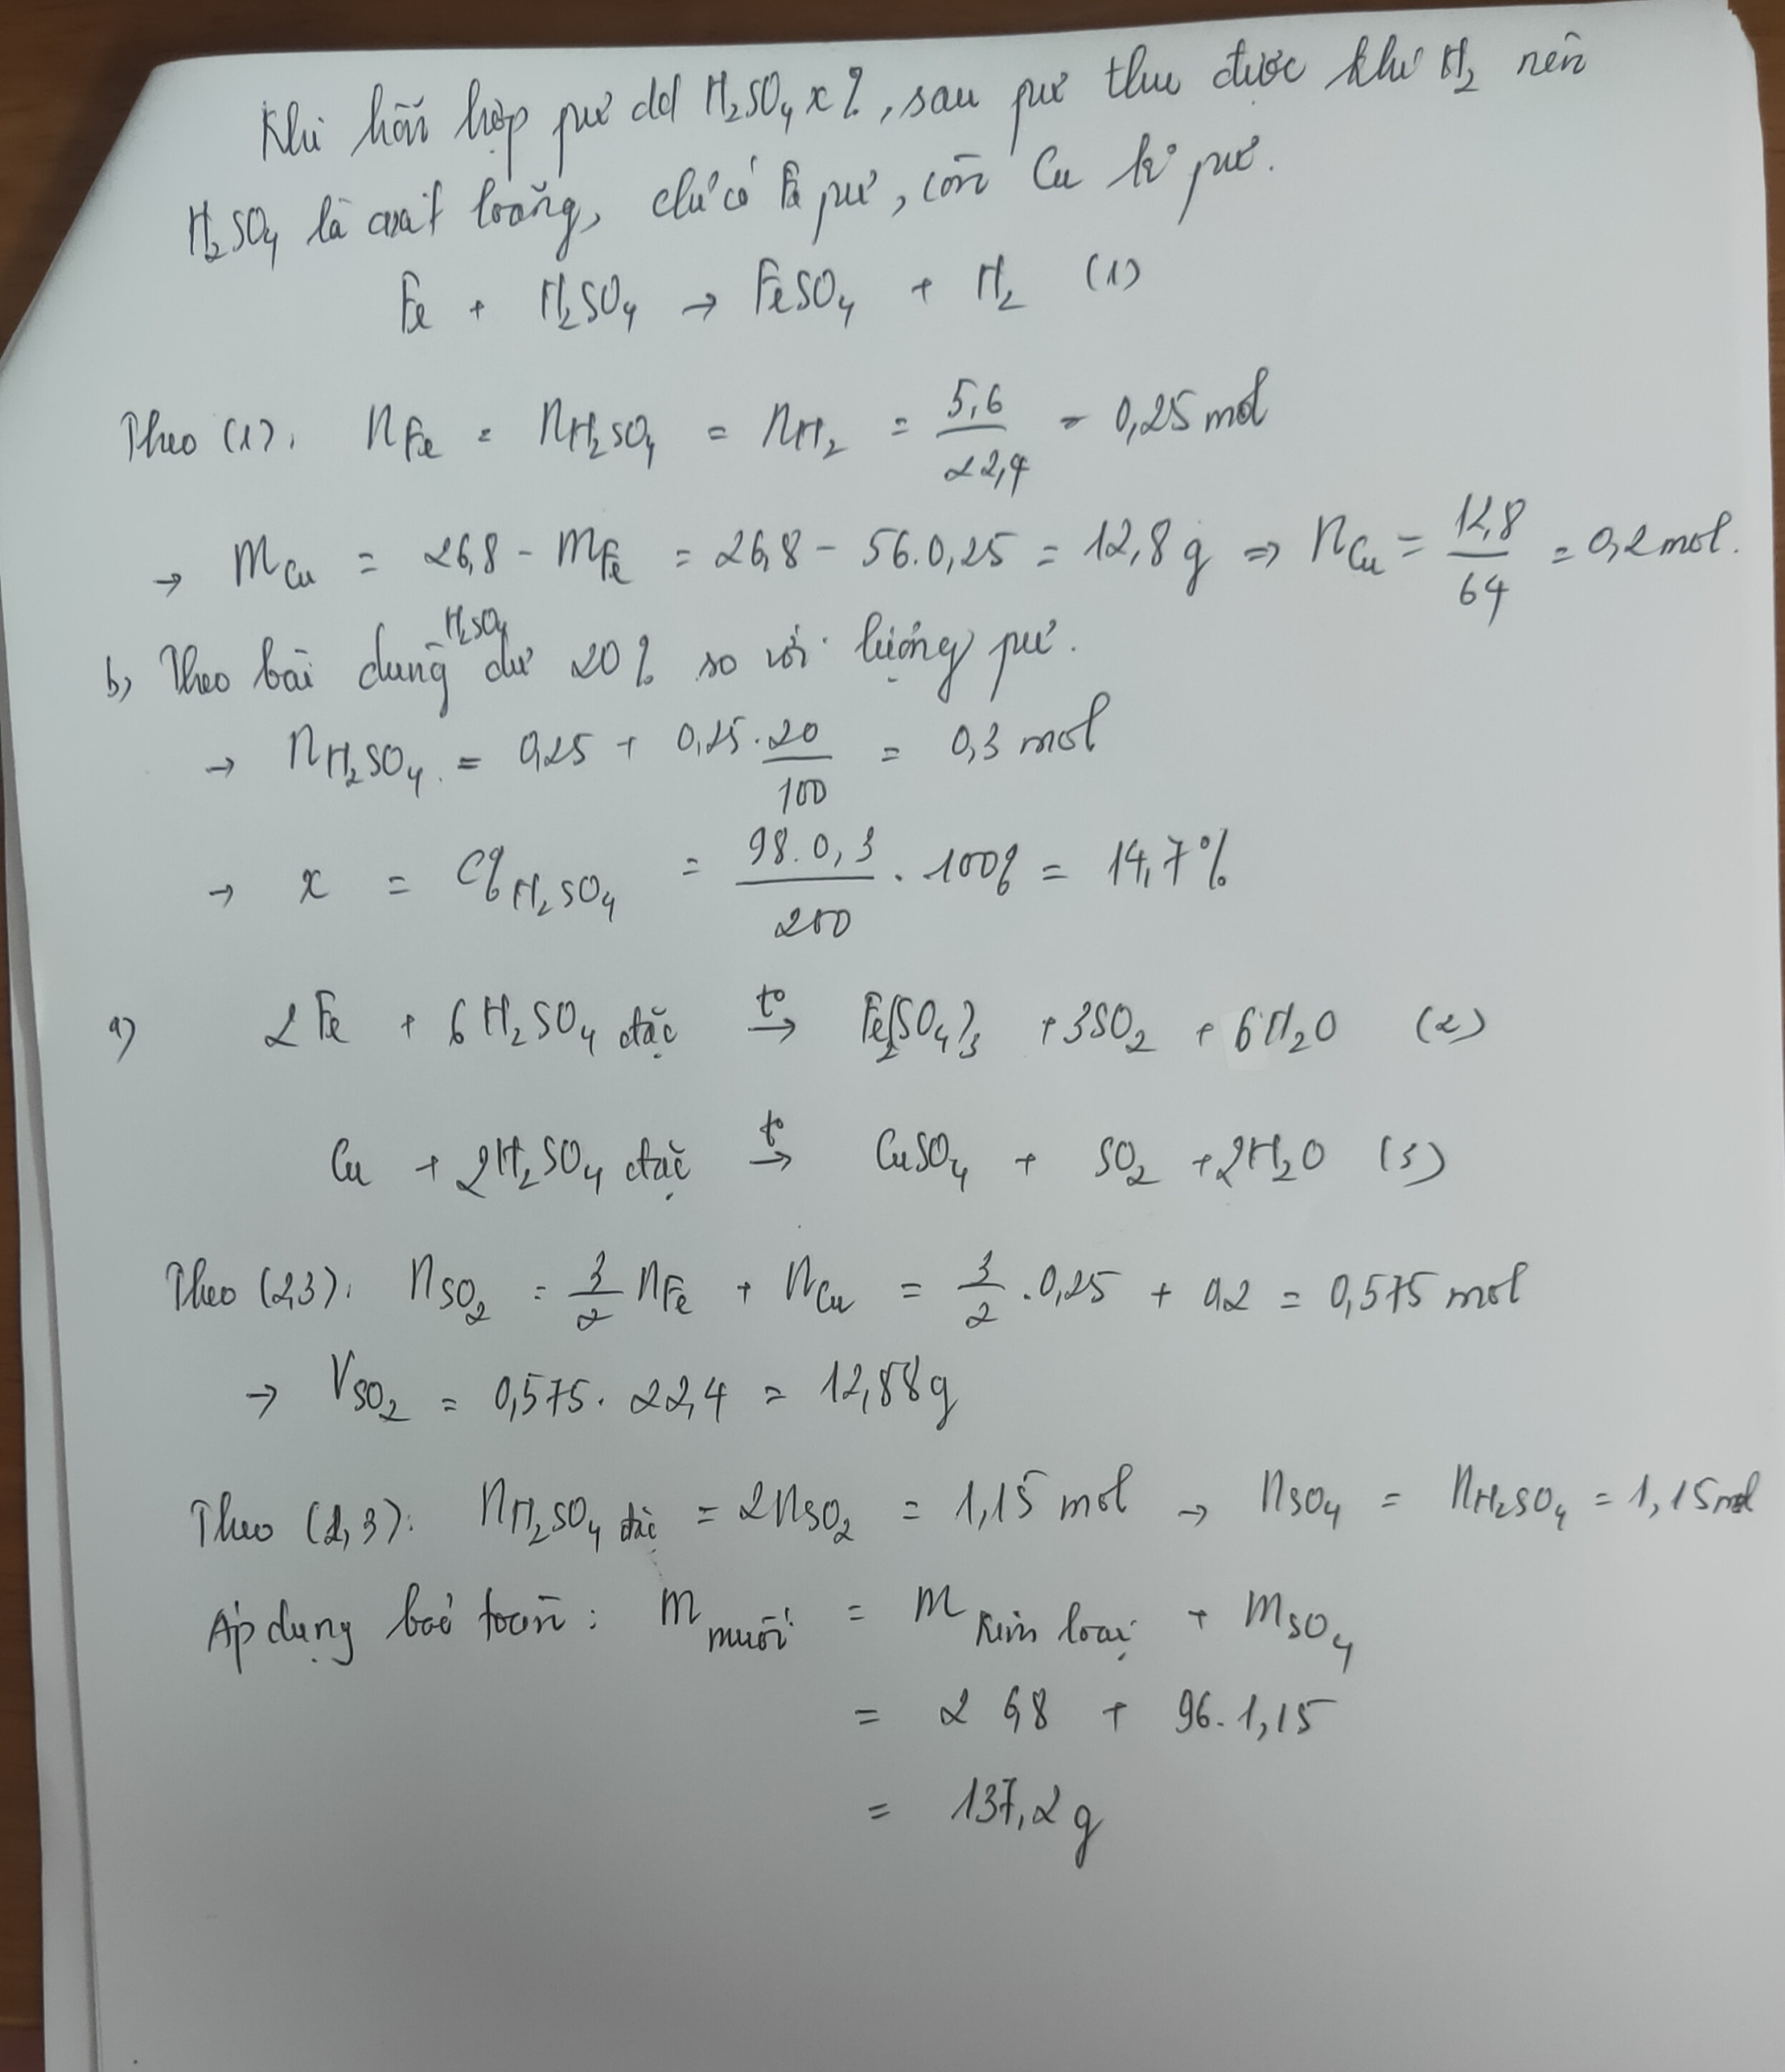 Khi hỗn hợp pư dd H₂SO₄ x%, sau pư thu được khí H₂ nên
H₂SO₄ là axit loãng, chỉ có Fe pư, còn Cu k° pư.
Fe + H₂SO₄ → FeSO₄ + H₂ (1)
Theo (1): nFe = nH₂SO₄ = nH₂ = 5,6/22,4 = 0,25 mol
→ mCu = 26,8 - mFe = 26,8 - 56.0,25 = 12,8 g ⇒ nCu = 12,8/64 = 0,2 mol.
b) Theo bài dùng H₂SO₄ dư 20% so với lượng pư.
→ nH₂SO₄ = 0,25 + 0,25.20/100 = 0,3 mol
→ x = C%H₂SO₄ = 98.0,3/200 . 100% = 14,7%
a) 2Fe + 6H₂SO₄ đặc t°→ Fe₂(SO₄)₃ + 3SO₂ + 6H₂O (2)
Cu + 2H₂SO₄ đặc t°→ CuSO₄ + SO₂ + 2H₂O (3)
Theo (2,3): nSO₂ = 3/2 nFe + nCu = 3/2 .0,25 + 0,2 = 0,575 mol
→ VSO₂ = 0,575. 22,4 = 12,88g
Theo (2,3): nH₂SO₄ đặc = 2nSO₂ = 1,15 mol → nSO₄ = nH₂SO₄ = 1,15 mol
Áp dụng bảo toàn: m muối = m kim loại + mSO₄
= 26,8 + 96.1,15
= 137,2 g